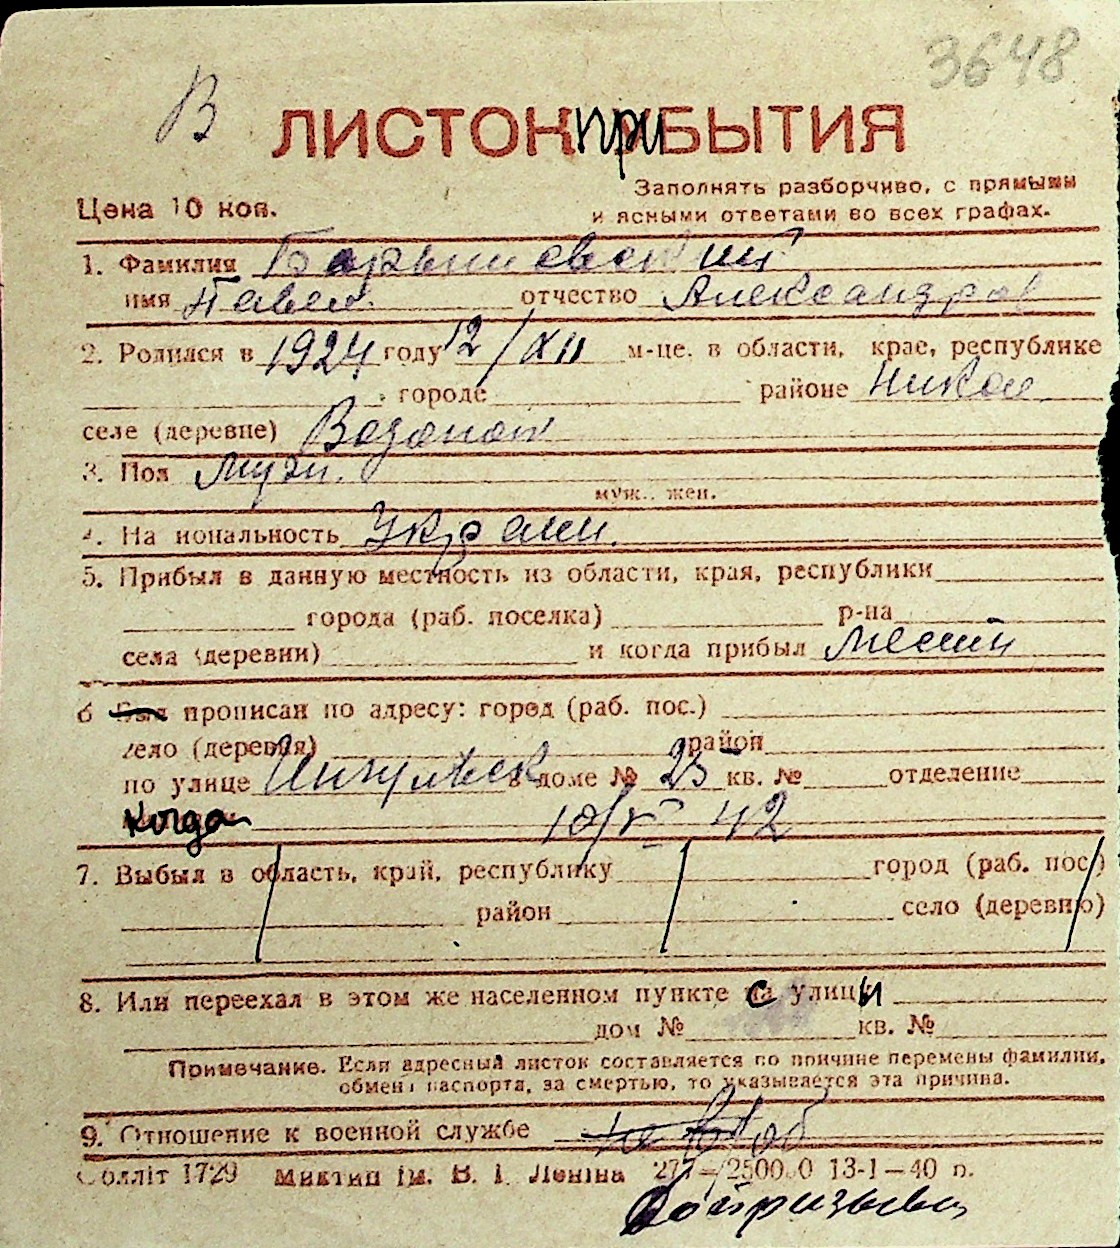 3648
В ЛИСТОК ПРИБЫТИЯ
Заполнять разборчиво, с прямыми
Цена 10 коп. и ясными ответами во всех графах.
1. Фамилия
имя Павел отчество Александров
2. Родился в 1924 году 12/XII м-це. в области, крае, республике
городе районе Никол
селе (деревне) Водопой
3. Пол муж.
муж.. жен.
4. Национальность Украин.
5. Прибыл в данную местность из области, края, республики
города (раб. поселка) р-на
села (деревни) и когда прибыл местн
6 Был прописан по адресу: город (раб. пос.)
село (деревня) район
по улице Ингульск в доме № 25 кв. № отделение
когда 10/V 42
7. Выбыл в область, край, республику город (раб. пос.)
район село (деревню)
8. Или переехал в этом же населенном пункте с улицы
дом № кв. №
Примечание. Если адресный листок составляется по причине перемены фамилии,
обмена паспорта, за смертью, то указывается эта причина.
9. Отношение к военной службе
Облліт 1729 Миктип ім. В. І. Леніна 277—250000 13-1—40 п.
Допризывн